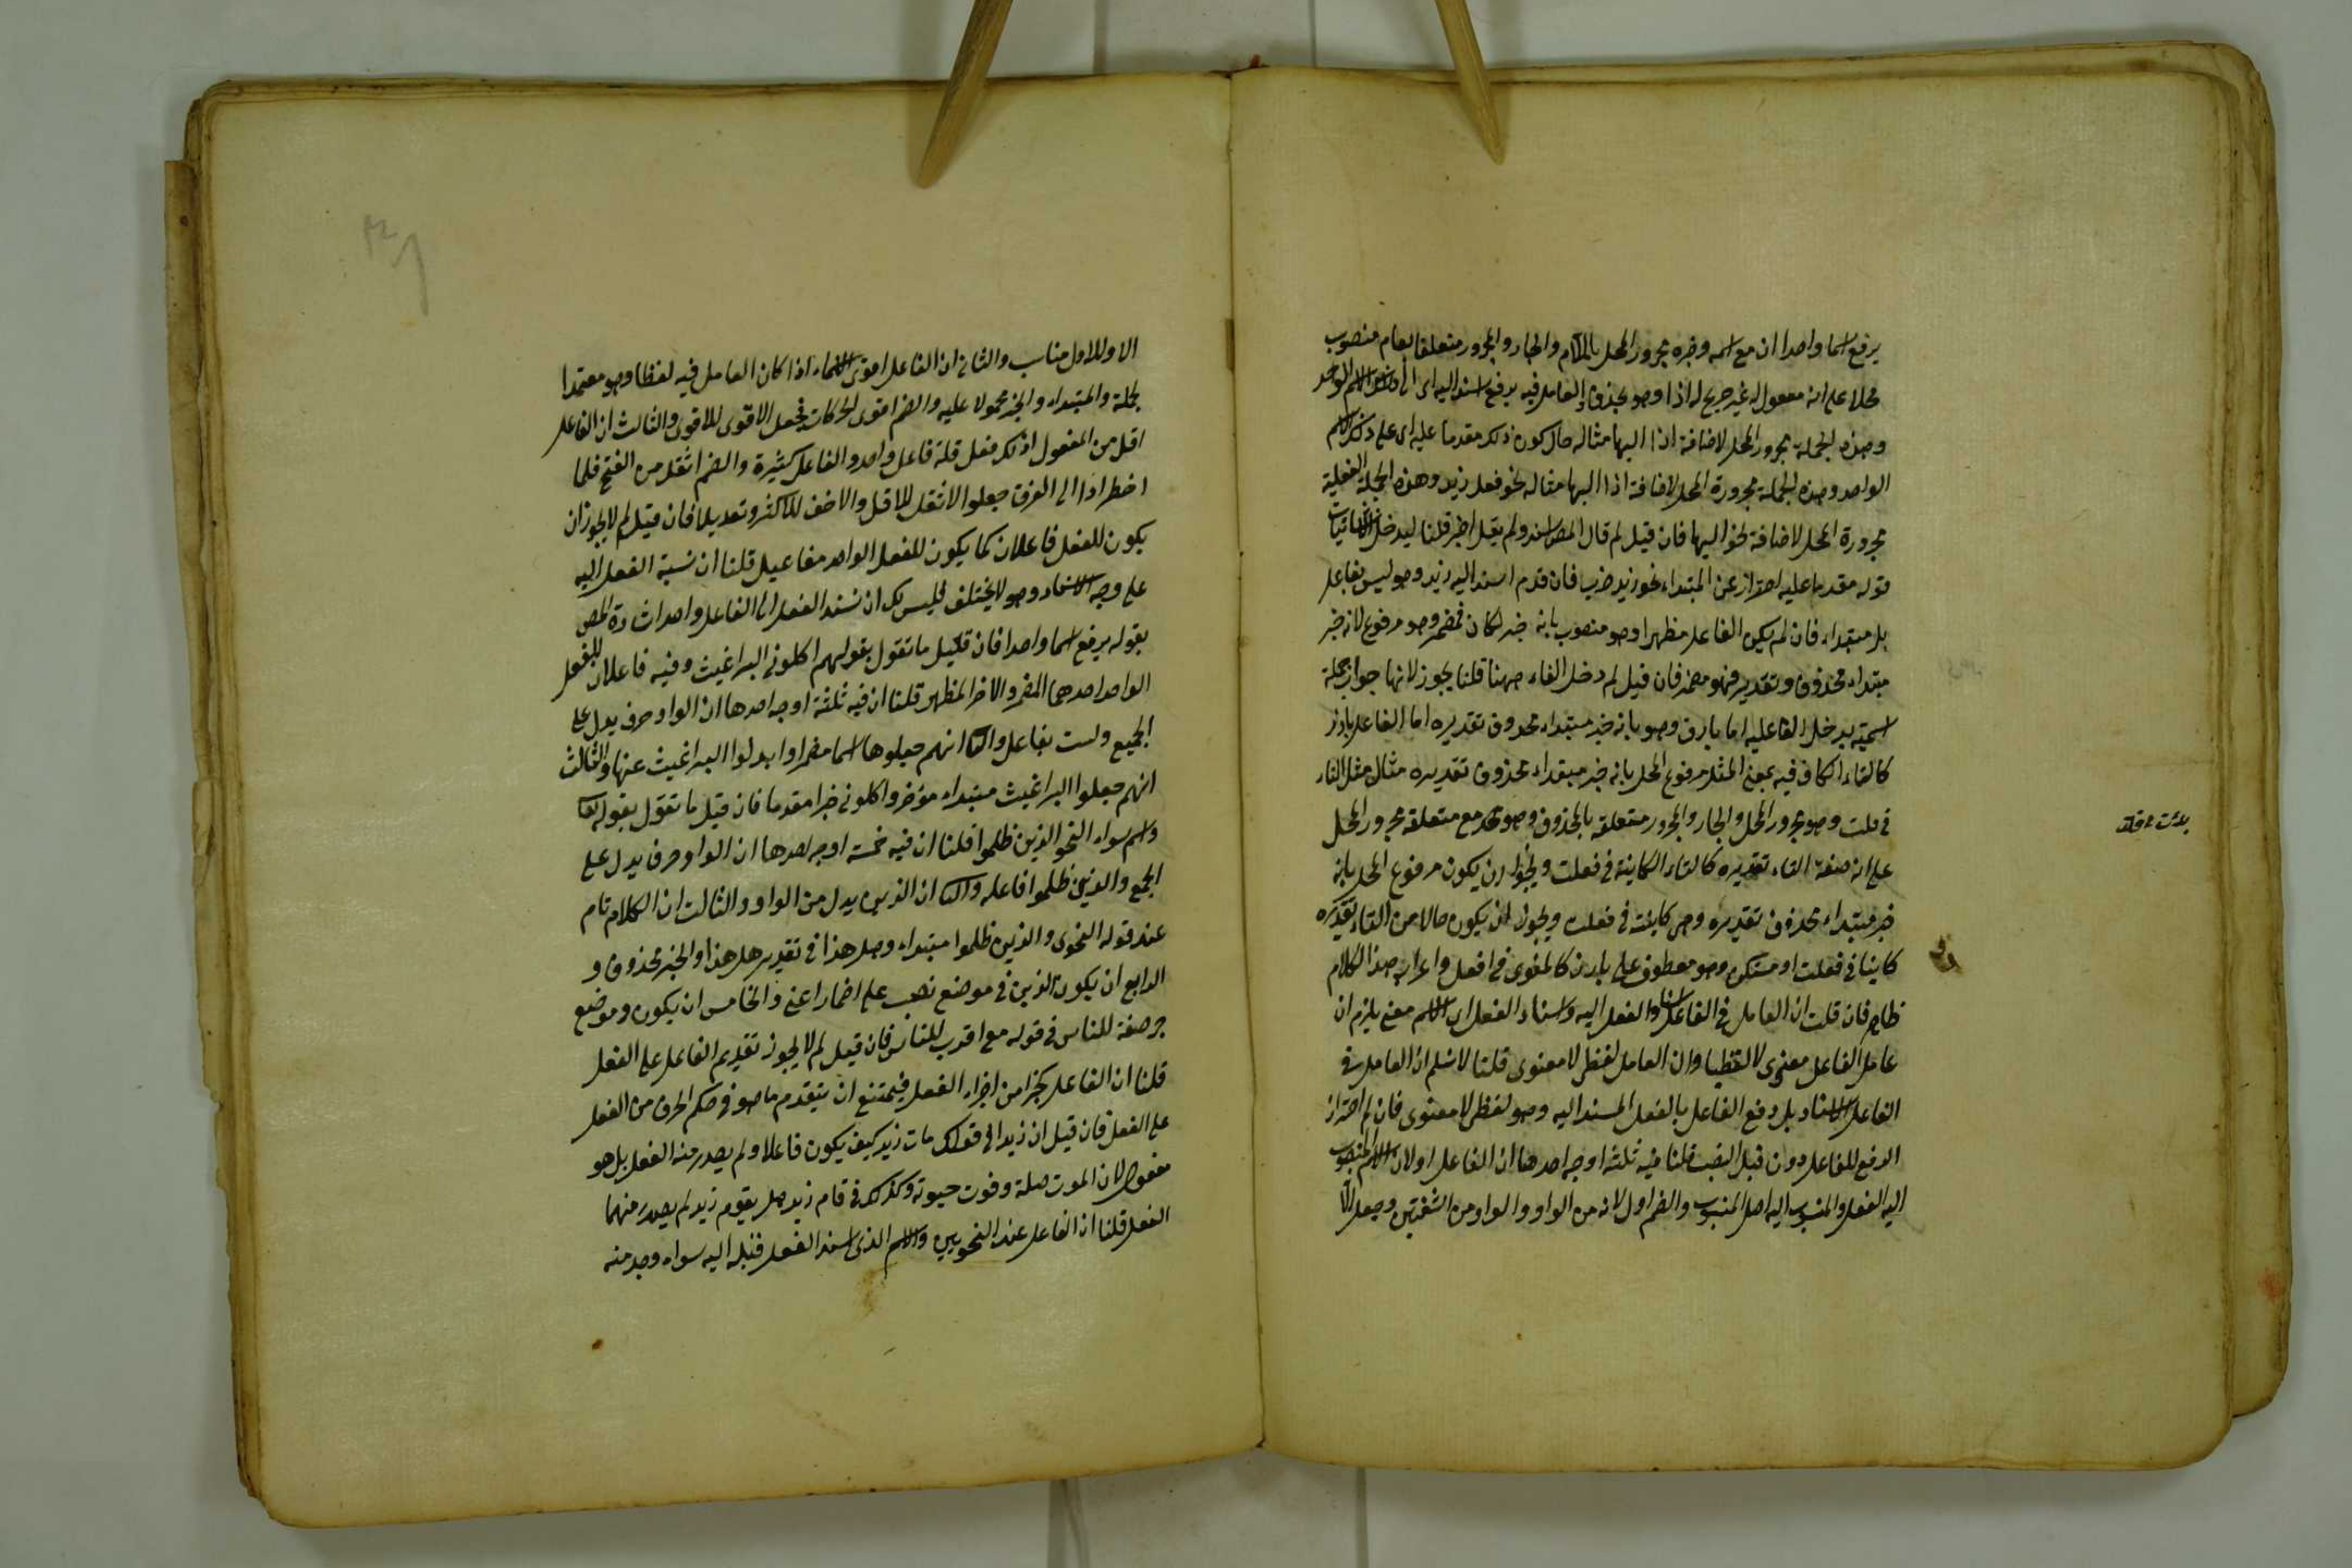 يرفع اسما واحدا ان مع اسمه وخبره مجرور المحل باللام والجار والمجرور متعلقا بعام منصوب
محلا على انه مفعول له غير صريح له اذا وهو بحذف العامل فيه يرفع اسند اليه اى الى الاسم الواحد
وهذه الجملة مجرور المحل لاضافة اذا اليها مثاله حال كون ذلك مقدما عليه اى على ذلك الاسم
الواحد وهذه الجملة مجرورة المحل لاضافة اذا اليها مثاله نحو فعل زيد وهذه الجملة الفعلية
مجرورة المحل لاضافة نحو اليها فان قيل لم قال المص اسند ولم يقل اخبر قلنا ليدخل الانشائيات
قوله مقدما عليه احتراز عن المبتداء نحو زيد ضرب فان قدم اسند اليه زيد وهو ليس بفاعل
بل مبتداء فان لم يكن الفاعل مظهرا وهو منصوب بانه خبر لكان فمضمر وهو مرفوع لانه خبر
مبتداء محذوف وتقديره فهو مضمر فان قيل لم دخل الفاء ههنا قلنا يجوز لانها جواب جملة
اسمية يدخل الفا عليه اما بارز وهو بانه خبر مبتداء محذوف تقديره اما الفاعل بارز
كالتاء الكاف فيه بمعنى المثل مرفوع المحل بانه خبر مبتداء محذوف تقديره مثال مثل التاء
فى فعلت وهو مجرور المحل والجار والمجرور متعلقه بالمحذوف وهو مع متعلقه مجرور المحل
على انه صفة التاء تقديره كالتاء الكاينة فى فعلت ويجوز ان يكون مرفوع المحل بانه
خبر مبتداء محذوف تقديره وهى كاينة فى فعلت ويجوز ان يكون حالا من التاء تقديره
كاينا فى فعلت او مستكن وهو معطوف على بارز كالمنوى فى افعل واعراب هذا الكلام
ظاهر فان قلت ان العامل فى الفاعل اسناد الفعل اليه واسناد الفعل الى الاسم معنى يلزم ان
عامل الفاعل معنوى لا لفظيا وان العامل لفظى لا معنوى قلنا لا نسلم ان العامل فى
الفاعل الاسناد بل رفع الفاعل بالفعل المسند اليه وهو لفظى لا معنوى فان لم اختار
الرفع للفاعل دون قبل النصب قلنا فيه ثلثة اوجه احدها ان الفاعل اولان الاسم المنصوب
اليه الفعل والمنسوب اليه اصل المنسوب والضم اول لانه من الواو والواو من الشفتين وجعل الا
بلغت مقابلة
الاول للاول مناسب والثانى ان الفاعل اقوى الاسماء اذا كان العامل فيه لفظا وهو معتمدا
بجملة والمبتداء والخبر محمولا عليه والضم اقوى الحركات فجعل الاقوى للاقوى والثالث ان الفاعل
اقل من المفعول اذ لكل فعل قلة فاعل واحد والفاعل كثيرة والضم اثقل من الفتح فلما
اضطرادا الى الفرق جعلوا الاثقل للاقل والاخف للاكثر وتعديلا فان قيل لم لا يجوز ان
يكون للفعل فاعلان كما يكون للفعل الواحد مفاعيل قلنا ان نسبة الفعل اليه
على وجه الاسناد وهو لا يختلف فليس لك ان تسند الفعل الى الفاعل واحد اشارة المص
بقوله يرفع اسما واحدا فان قيل ما تقول بقولهم اكلونى البراغيث وفيه فاعلان للفعل
الواحد احدهما المضمر والاخر المظهر قلنا ان فيه ثلثة اوجه احدها ان الواو حرف يدل على
الجميع وليست بفاعل والثانى انهم جعلوها اسما مضمرا وابدلوا البراغيث عنها والثالث
انهم جعلوا البراغيث مبتداء مؤخر واكلونى خبرا مقدما فان قيل ما تقول بقوله تعالى
واسروا النجوى الذين ظلموا قلنا ان فيه خمسة اوجه احدها ان الواو حرف يدل على
الجمع والذين ظلموا فاعله والثانى ان الذين بدل من الواو والثالث ان الكلام تام
عند قوله النجوى والذين ظلموا مبتداء وهل هذا فى تقدير هل هذا والخبر محذوف و
الرابع ان يكون الذين فى موضع نصب على اضمار اعنى والخامس ان يكون وموضع
جر صفة للناس فى قوله مع اقترب للناس فان قيل لم لا يجوز تقديم الفاعل على الفعل
قلنا ان الفاعل كجزا من اجزاء الفعل فيمتنع ان يتقدم ما هو فى حكم الحرف من الفعل
على الفعل فان قيل ان زيدا فى قولك مات زيد كيف يكون فاعلا ولم يصدر منه الفعل بل هو
مفعول لان الموت صلة وفوت حيوته وكذلك فى قام زيد هل يقوم زيد لم يصدر منهما
الفعل قلنا ان الفاعل عند النحويين والاسم الذى اسند الفعل قبله اليه سواء وجد منه